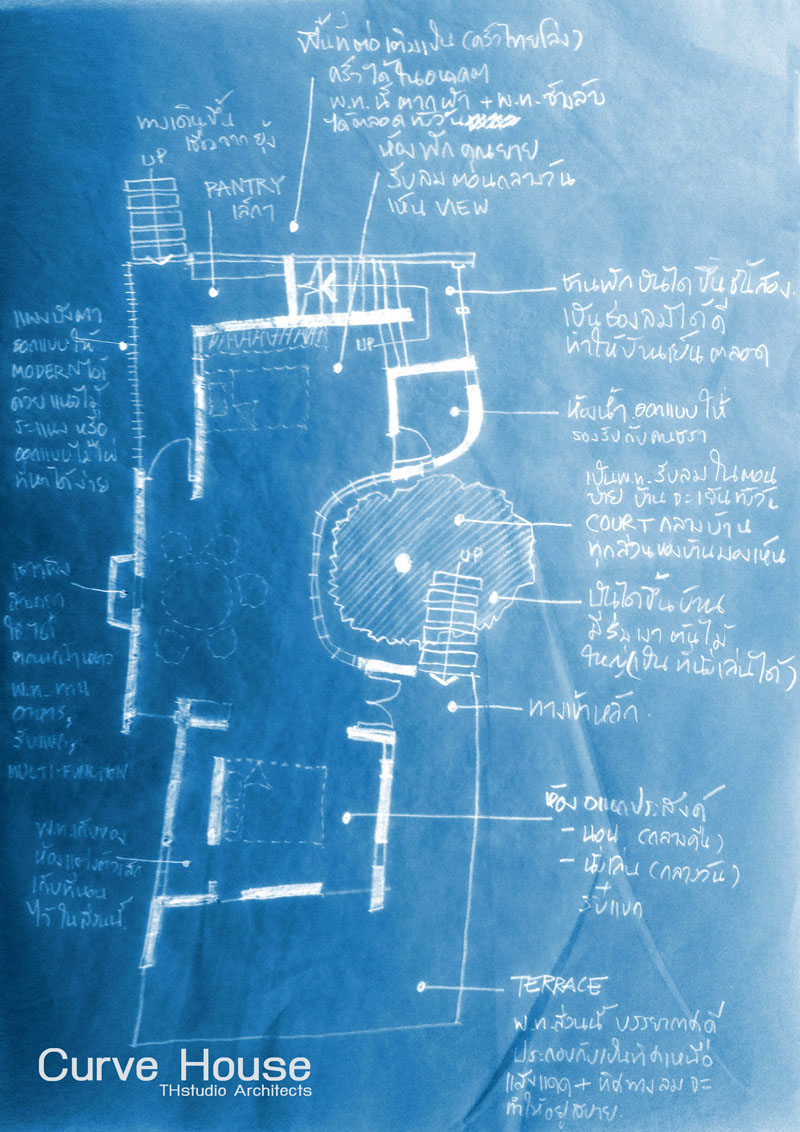 พื้นที่ต่อเติมเป็น (ครัวไทยโล่ง)
ครัวได้ในอนาคต
พ.ท. นี้ ตากผ้า + พ.ท. ซักล้าง
ได้ตลอดทั้งวัน
ทางเดินขึ้น
UP
PANTRY
เล็กๆ
ห้องพักคุณยาย
รับลมตอนกลางวัน
เห็น VIEW
ชานพักบันไดขึ้นชั้นสอง
เป็นช่องลมได้ดี
ทำให้บ้านเย็นตลอด
แผงบังตา
ออกแบบให้
MODERN ได้
ด้วยแนวไม้
ระแนง หรือ
ออกแบบไม้ไผ่
ที่หาได้ง่าย
UP
ห้องน้ำ ออกแบบให้
รองรับกับคนชรา
เป็น พ.ท. รับลมในตอน
บ่าย บ้านจะเย็นทั้งวัน
COURT กลางบ้าน
ทุกส่วนของบ้านมองเห็น
UP
บันไดขึ้นบ้าน
มีร่มเงาต้นไม้
ใหญ่ (เป็นที่นั่งเล่นได้)
พ.ท. ทาน
อาหาร,
รับแขก,
MULTI-FUNCTION
ทางเข้าหลัก
ห้องอเนกประสงค์
- นอน (กลางคืน)
- นั่งเล่น (กลางวัน)
รับแขก
พ.ท. เก็บของ
ห้องแต่งตัวเล็ก
เก็บที่นอน
ไว้ในส่วนนี้
TERRACE
พ.ท. ส่วนนี้ บรรยากาศดี
ประกอบกับเป็นทิศเหนือ
แสงแดด + ทิศทางลมจะ
ทำให้อยู่สบาย
Curve House
THstudio Architects